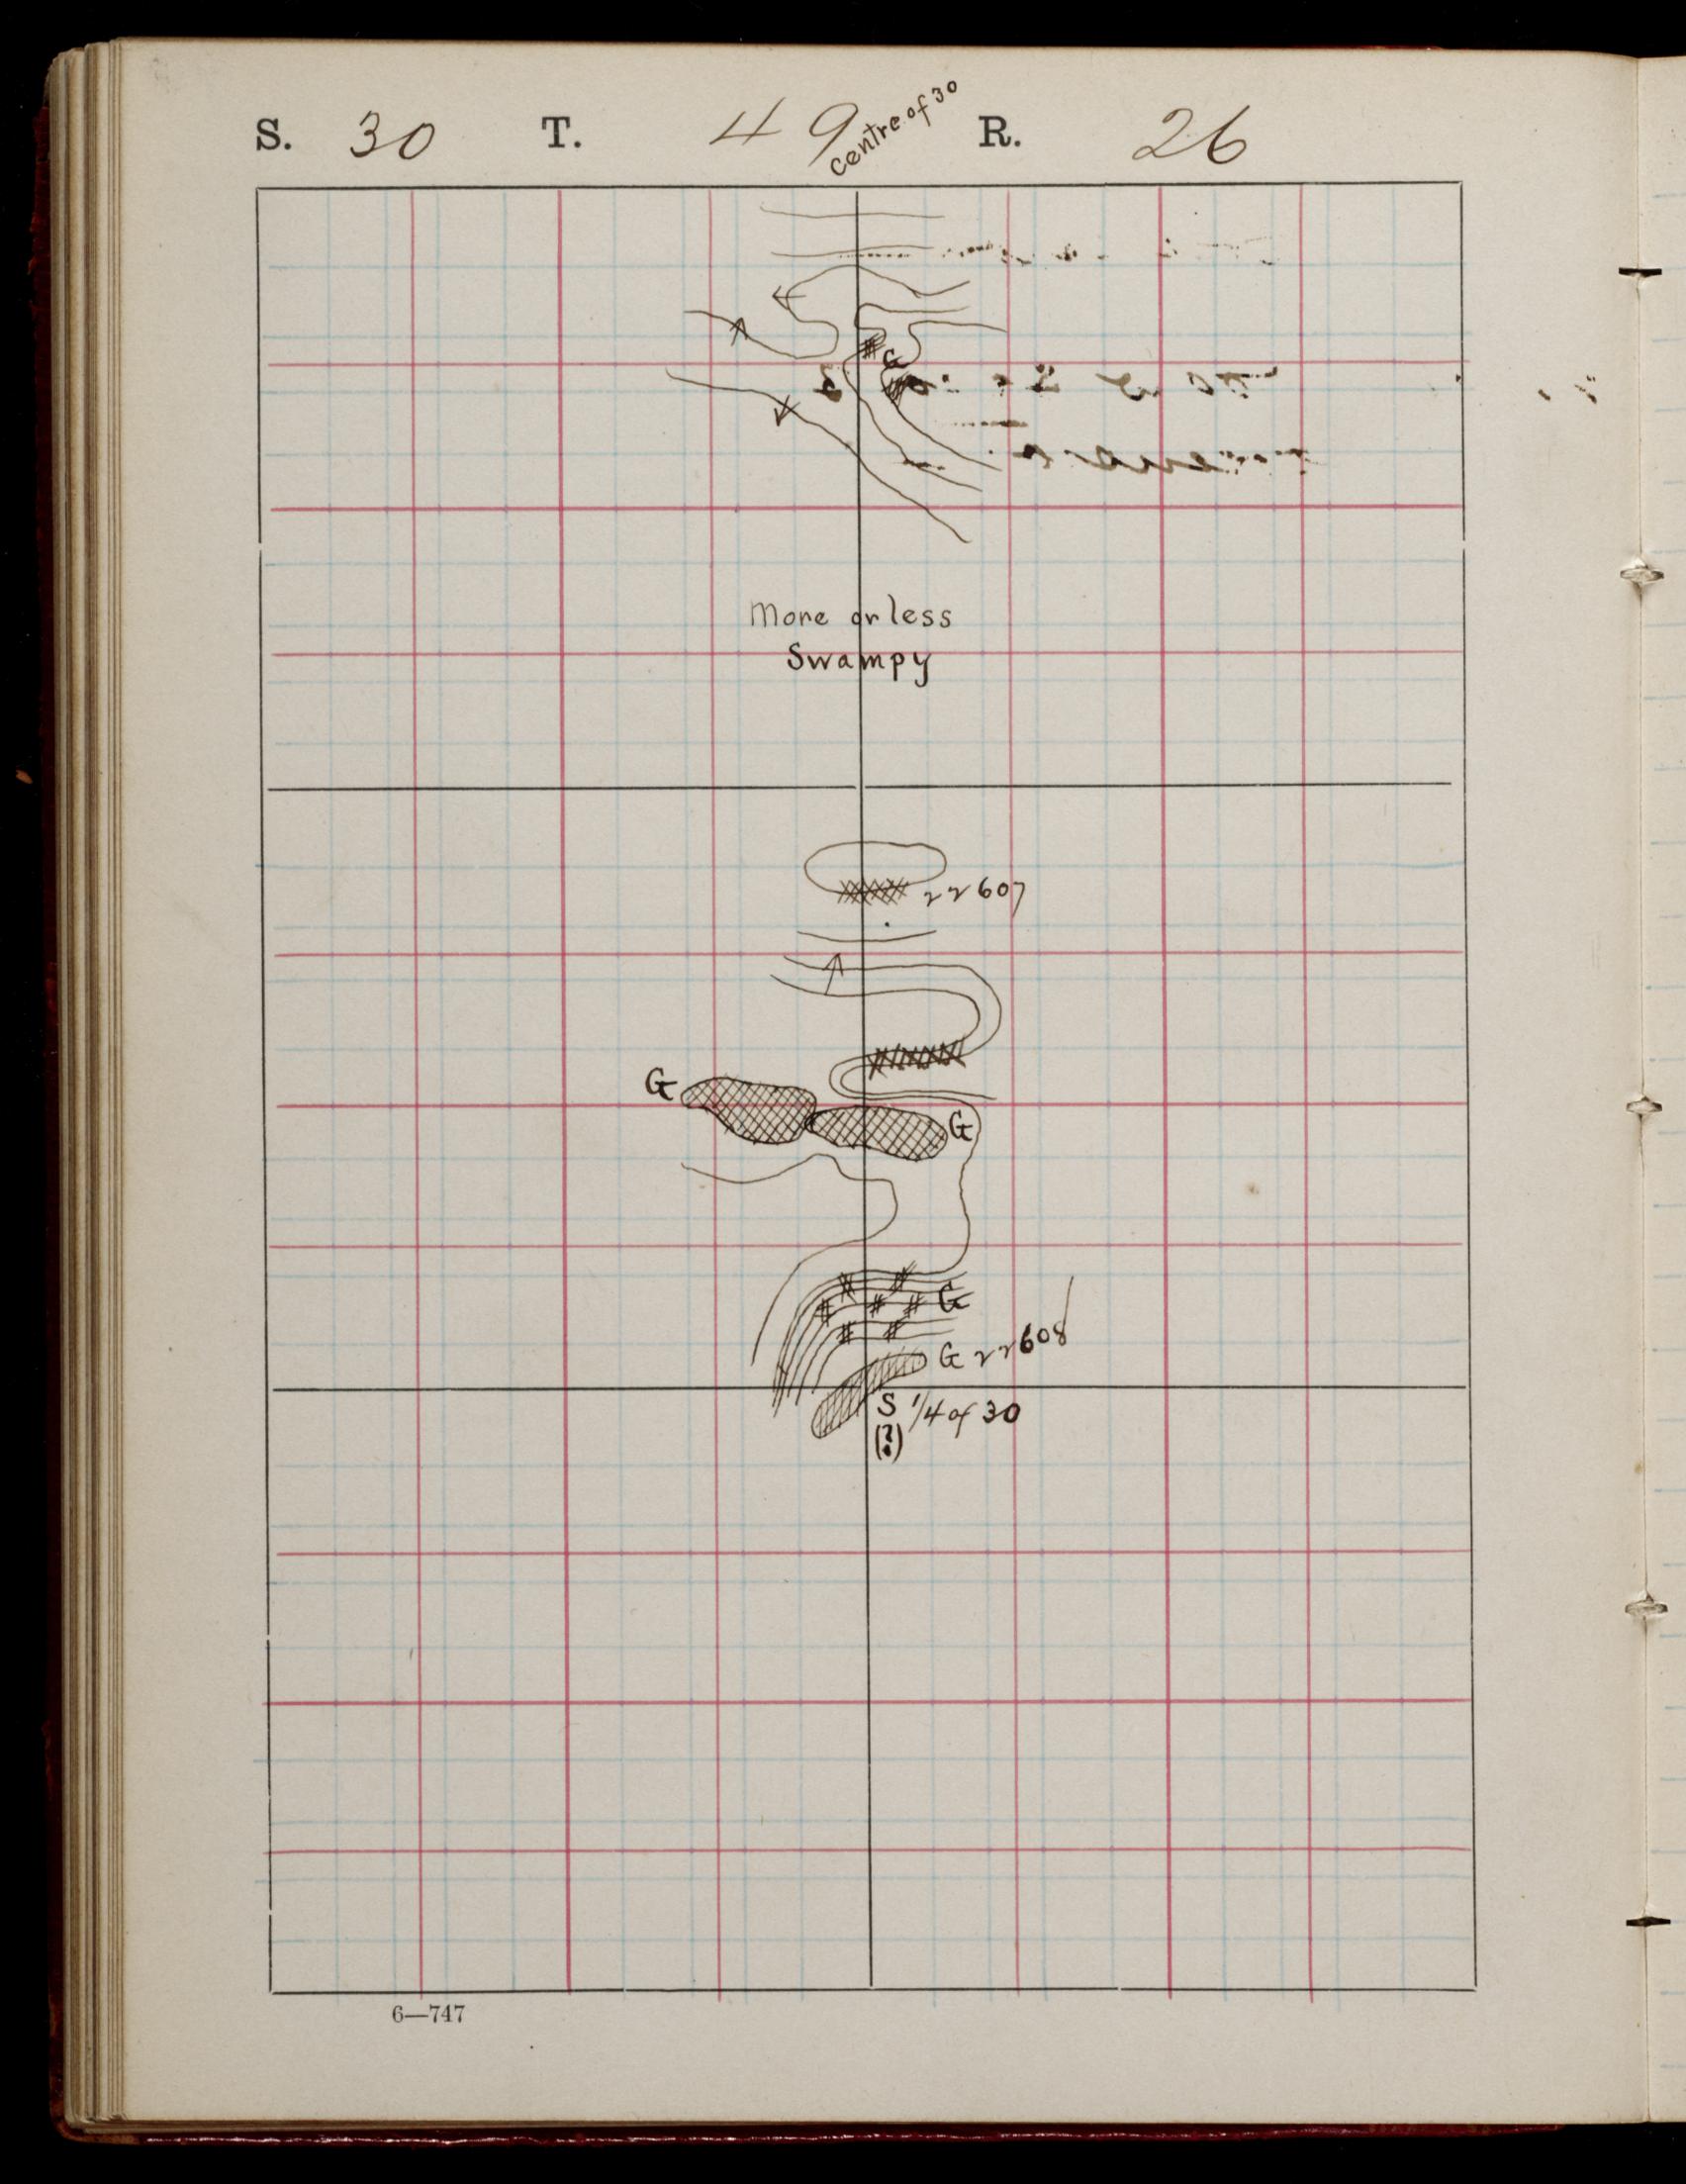 S. 30 T. 49 R. 26
Centre of 30
G
More or less
Swampy
22607
G
G
G
G 22608
S 1/4 of 30
(?)
6—747